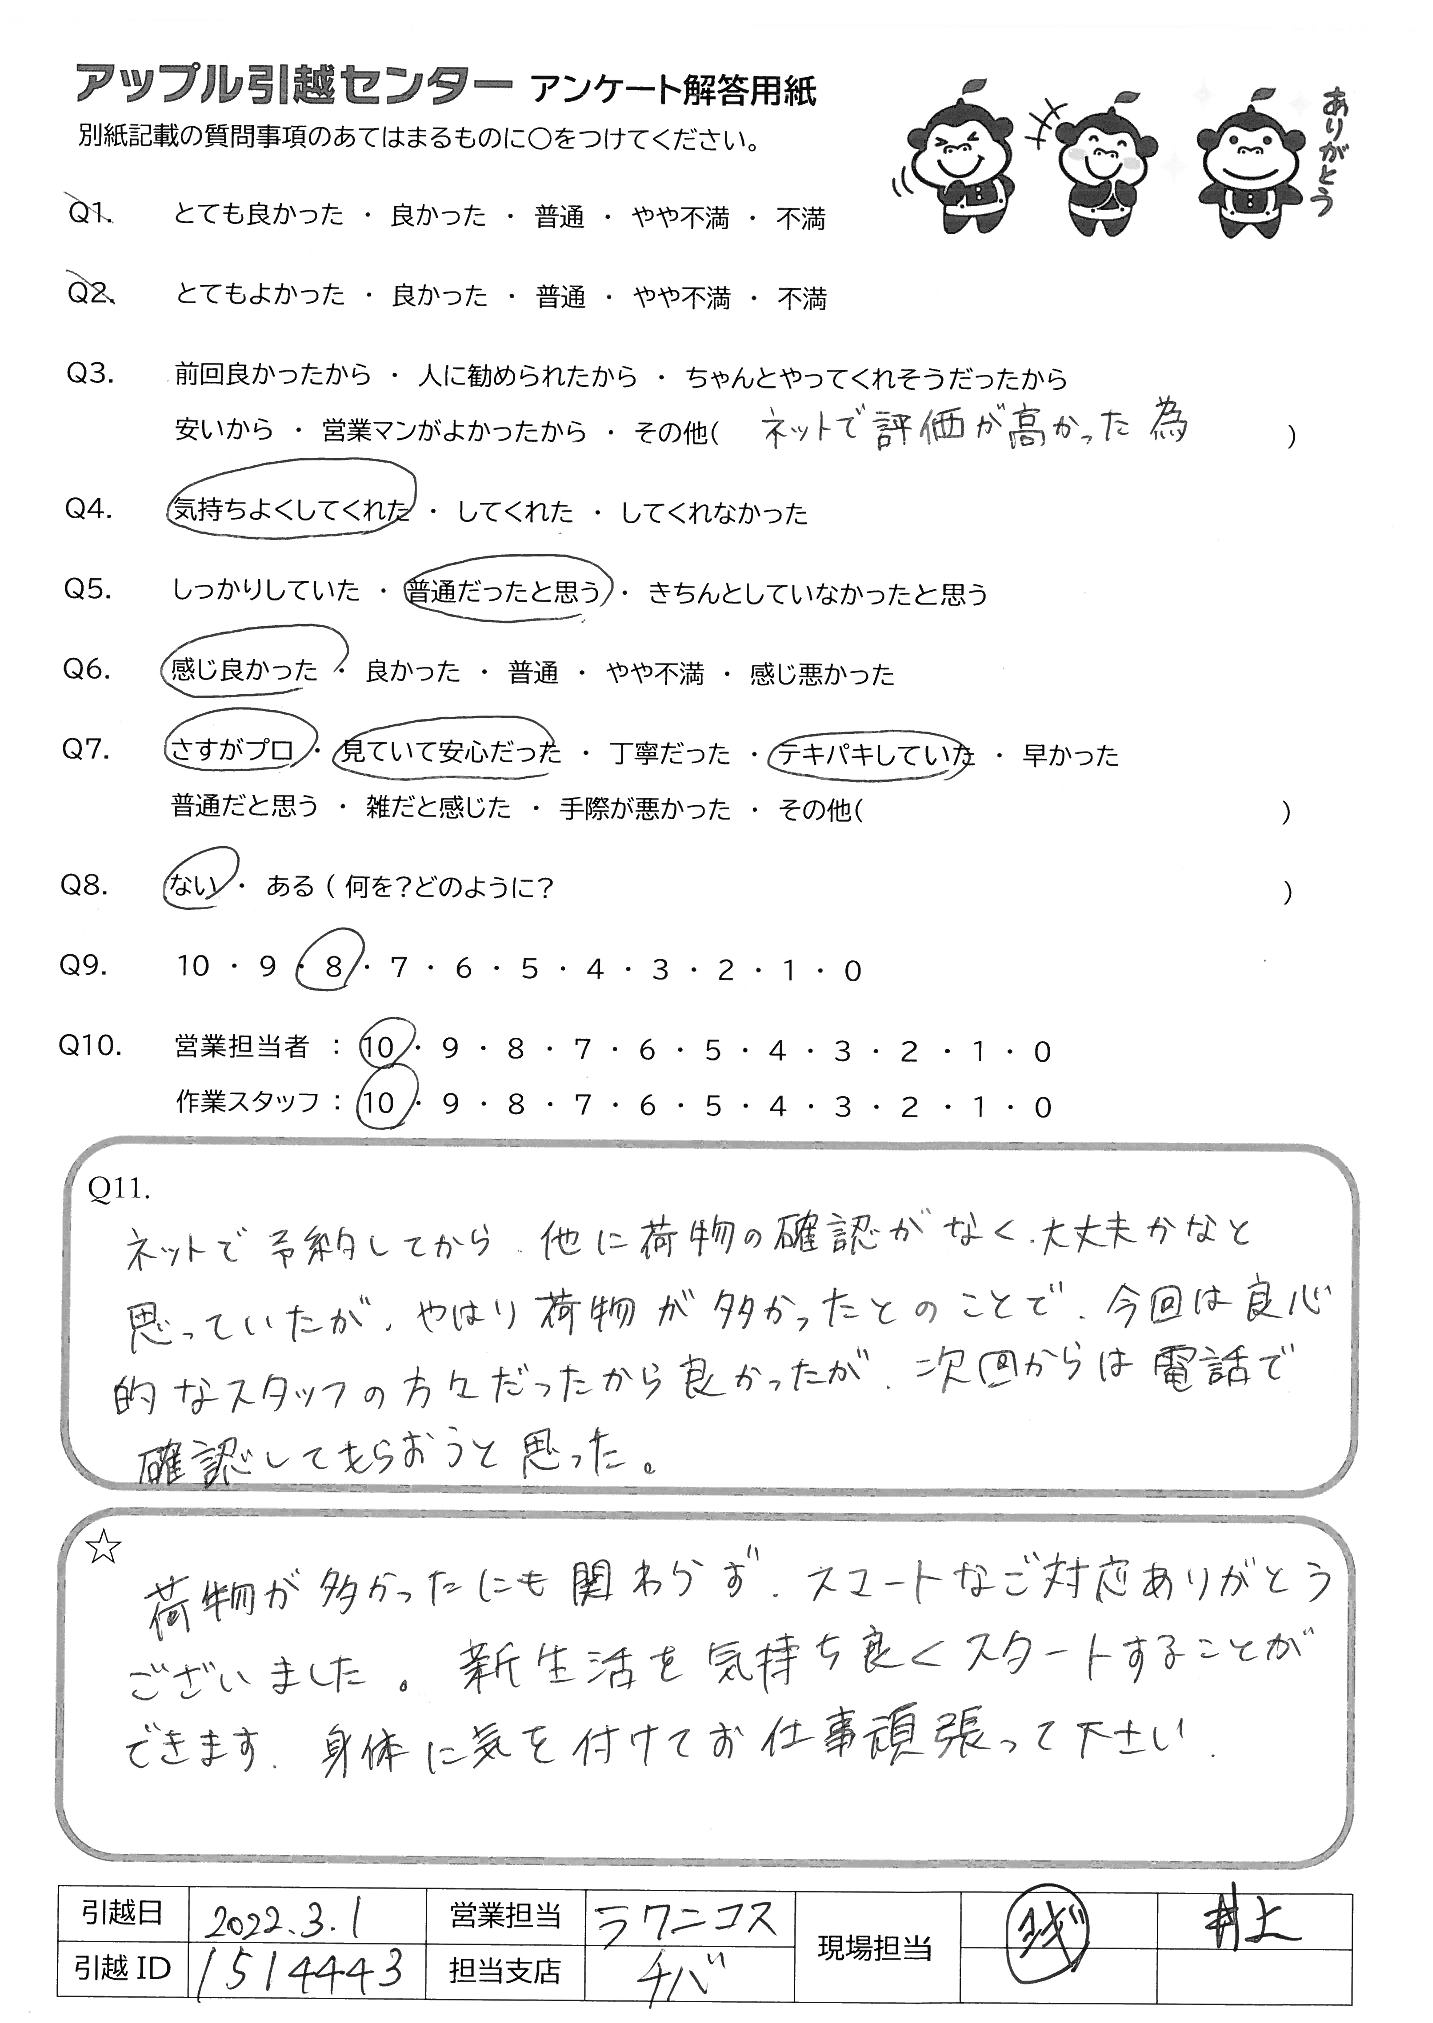 アップル引越センター アンケート解答用紙
別紙記載の質問事項のあてはまるものに○をつけてください。
ありがとう
Q1. とても良かった ・ 良かった ・ 普通 ・ やや不満 ・ 不満
Q2. とてもよかった ・ 良かった ・ 普通 ・ やや不満 ・ 不満
Q3. 前回良かったから ・ 人に勧められたから ・ ちゃんとやってくれそうだったから
安いから ・ 営業マンがよかったから ・ その他( ネットで評価が高かった為 )
Q4. 気持ちよくしてくれた ・ してくれた ・ してくれなかった
Q5. しっかりしていた ・ 普通だったと思う ・ きちんとしていなかったと思う
Q6. 感じ良かった ・ 良かった ・ 普通 ・ やや不満 ・ 感じ悪かった
Q7. さすがプロ ・ 見ていて安心だった ・ 丁寧だった ・ テキパキしていた ・ 早かった
普通だと思う ・ 雑だと感じた ・ 手際が悪かった ・ その他( )
Q8. ない ・ ある ( 何を?どのように? )
Q9. 10 ・ 9 ・ 8 ・ 7 ・ 6 ・ 5 ・ 4 ・ 3 ・ 2 ・ 1 ・ 0
Q10. 営業担当者 : 10 ・ 9 ・ 8 ・ 7 ・ 6 ・ 5 ・ 4 ・ 3 ・ 2 ・ 1 ・ 0
作業スタッフ : 10 ・ 9 ・ 8 ・ 7 ・ 6 ・ 5 ・ 4 ・ 3 ・ 2 ・ 1 ・ 0
Q11.
ネットで予約してから、他に荷物の確認がなく、大丈夫かなと
思っていたが、やはり荷物が多かったとのことで、今回は良心
的なスタッフの方々だったから良かったが、次回からは電話で
確認してもらおうと思った。
☆
荷物が多かったにも関わらず、スマートなご対応ありがとう
ございました。新生活を気持ち良くスタートすることが
できます。身体に気を付けてお仕事頑張って下さい。
引越日 2022.3.1 営業担当 ラワニコス 現場担当 井上
引越ID 1514443 担当支店 チバ